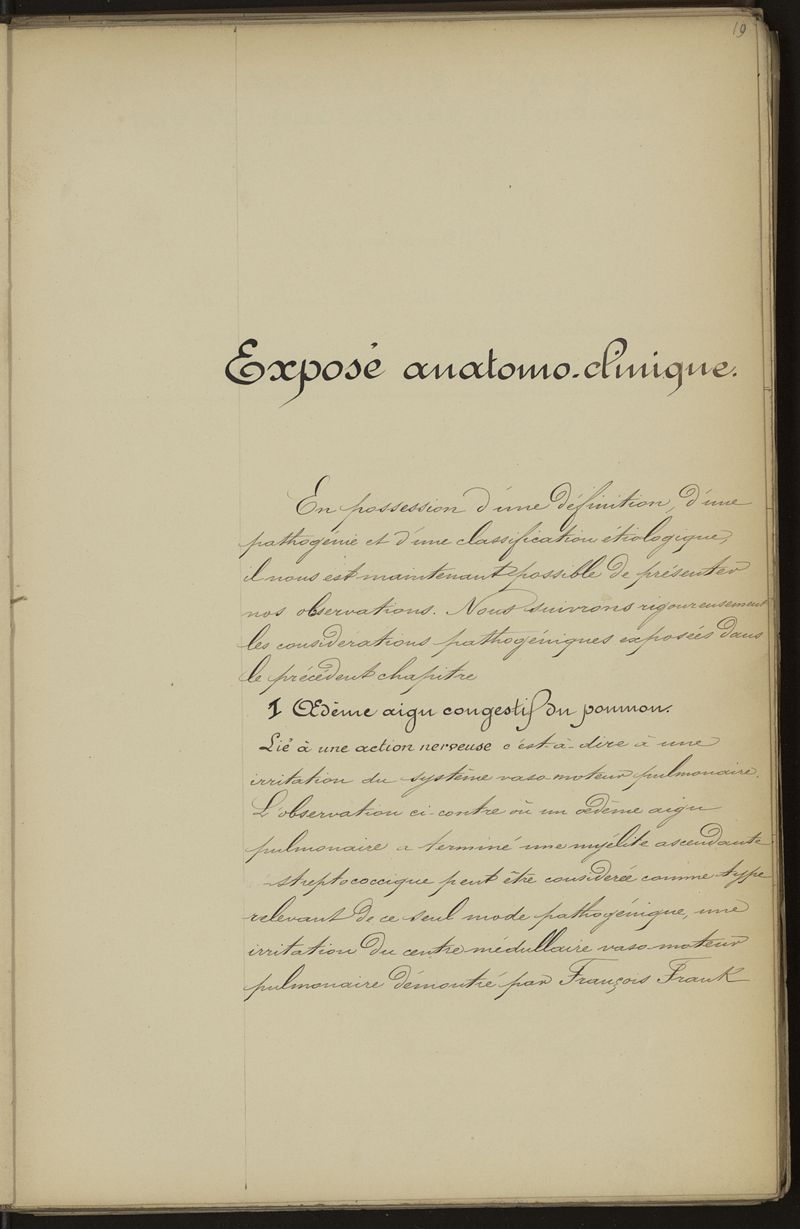 19
Exposé anatomo-clinique.
En possession d'une définition, d'une
pathogénie et d'une classification étiologique,
il nous est maintenant possible de présenter
nos observations. Nous suivrons rigoureusement
les considérations pathogéniques exposées dans
le précédent chapitre
I Œdème aigu congestif du poumon.
Lié à une action nerveuse c'est-à-dire à une
irritation du système vaso-moteur pulmonaire.
L'observation ci-contre où un œdème aigu
pulmonaire a terminé une myélite ascendante
streptococcique peut être considérée comme type
relevant de ce seul mode pathogénique, une
irritation du centre médullaire vaso-moteur
pulmonaire démontré par François Frank